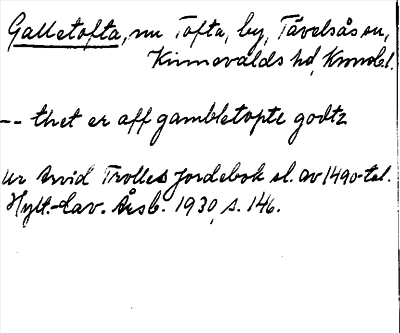 Galletofta, nu Tofta, by, Tävelsås sn,
Kinnevalds hd, Kronobl.
-- thet er aff gambletopte godtz
ur Arvid Trolles jordebok sl. av 1490-tal.
Hylt.-Cav. Årsb. 1930, s. 146.